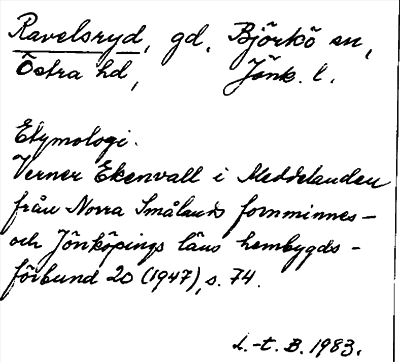 Ravelsryd, gd, Björkö sn,
Östra hd, Jönk. l.
Etymologi.
Verner Ekenvall i Meddelanden
från Norra Smålands fornminnes-
och Jönköpings läns hembygds-
förbund 20 (1947), s. 74.
L.-t. B. 1983.